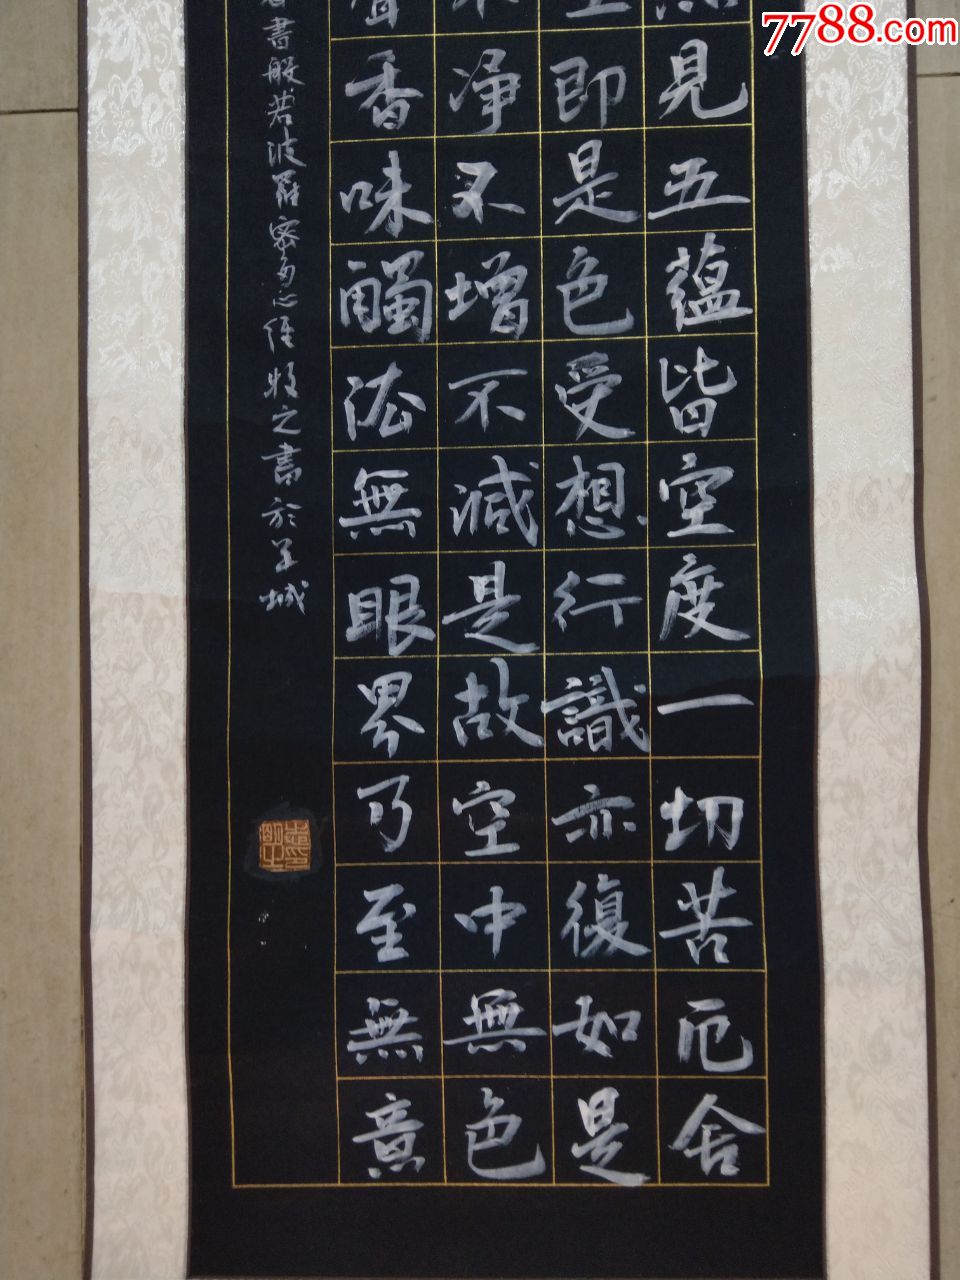 7788.com
見五蘊皆空度一切苦厄舍
即是色受想行識亦復如是
净不增不減是故空中無色
香味觸法無眼界乃至無意
書般若波羅蜜多心經牧之書於羊城